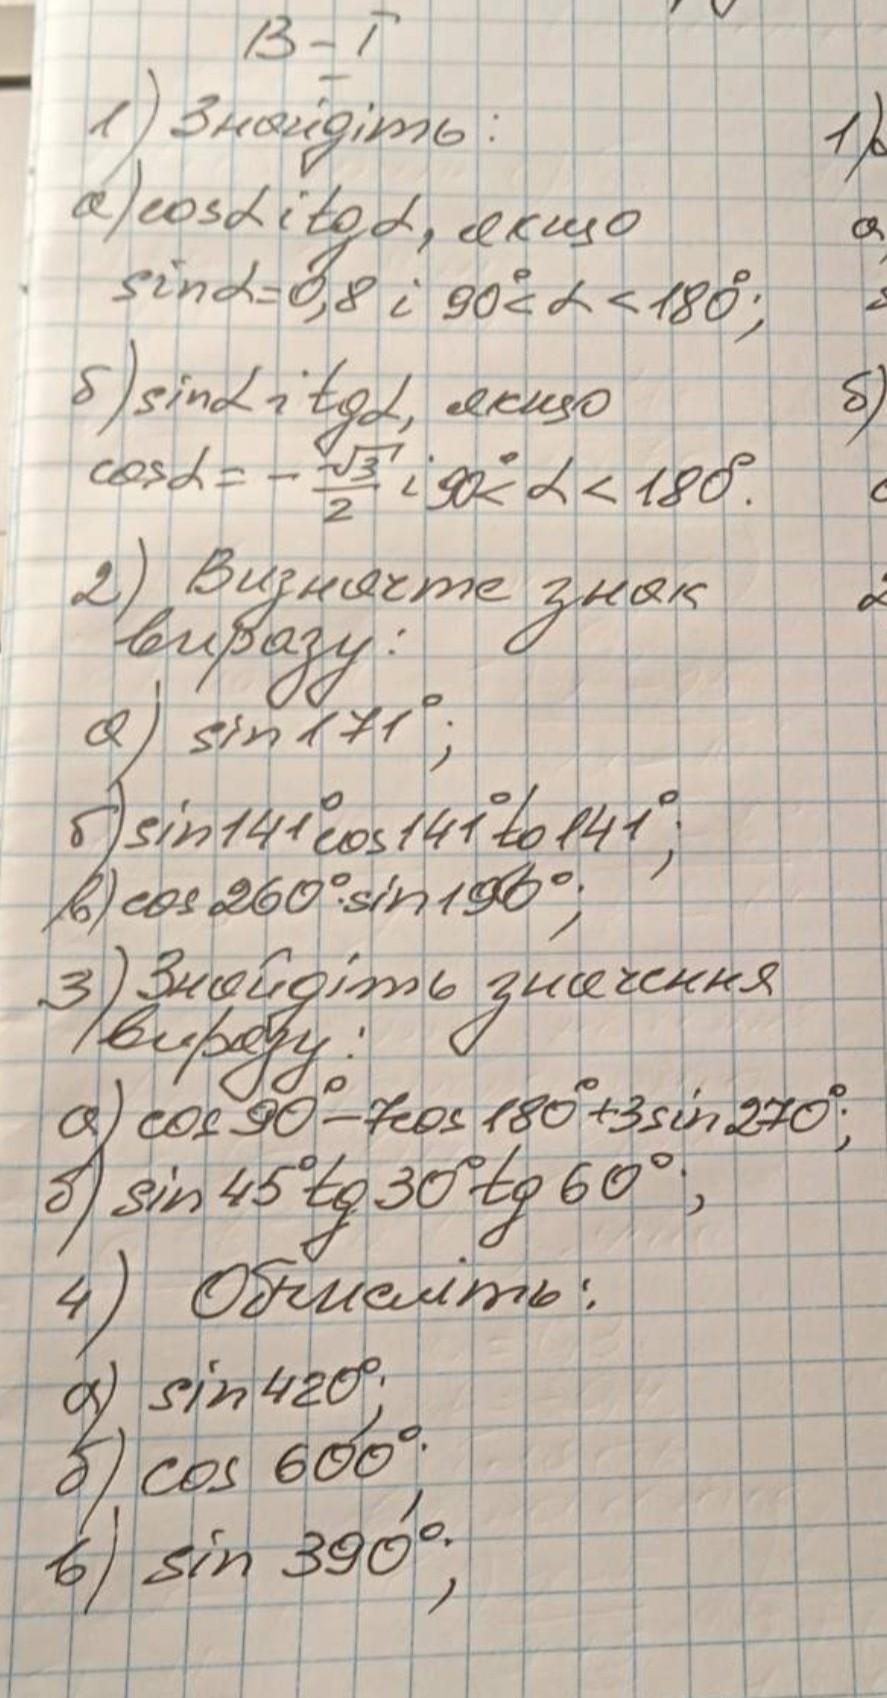 В-I
1) Знайдіть:
а) cosα i tgα, якщо
sinα=0,8 i 90°<α<180°;
б) sinα i tgα, якщо
cosα = -√3/2 i 90°<α<180°.
2) Визначте знак
виразу:
а) sin 171°;
б) sin141°cos141°to141°;
в) cos260°·sin190°;
3) Знайдіть значення
виразу:
а) cos90°-7cos180°+3sin270°;
б) sin45°tg30°tg60°;
4) Обчисліть:
а) sin420°;
б) cos 600°;
в) sin 390°;
1)
а)
б)
2